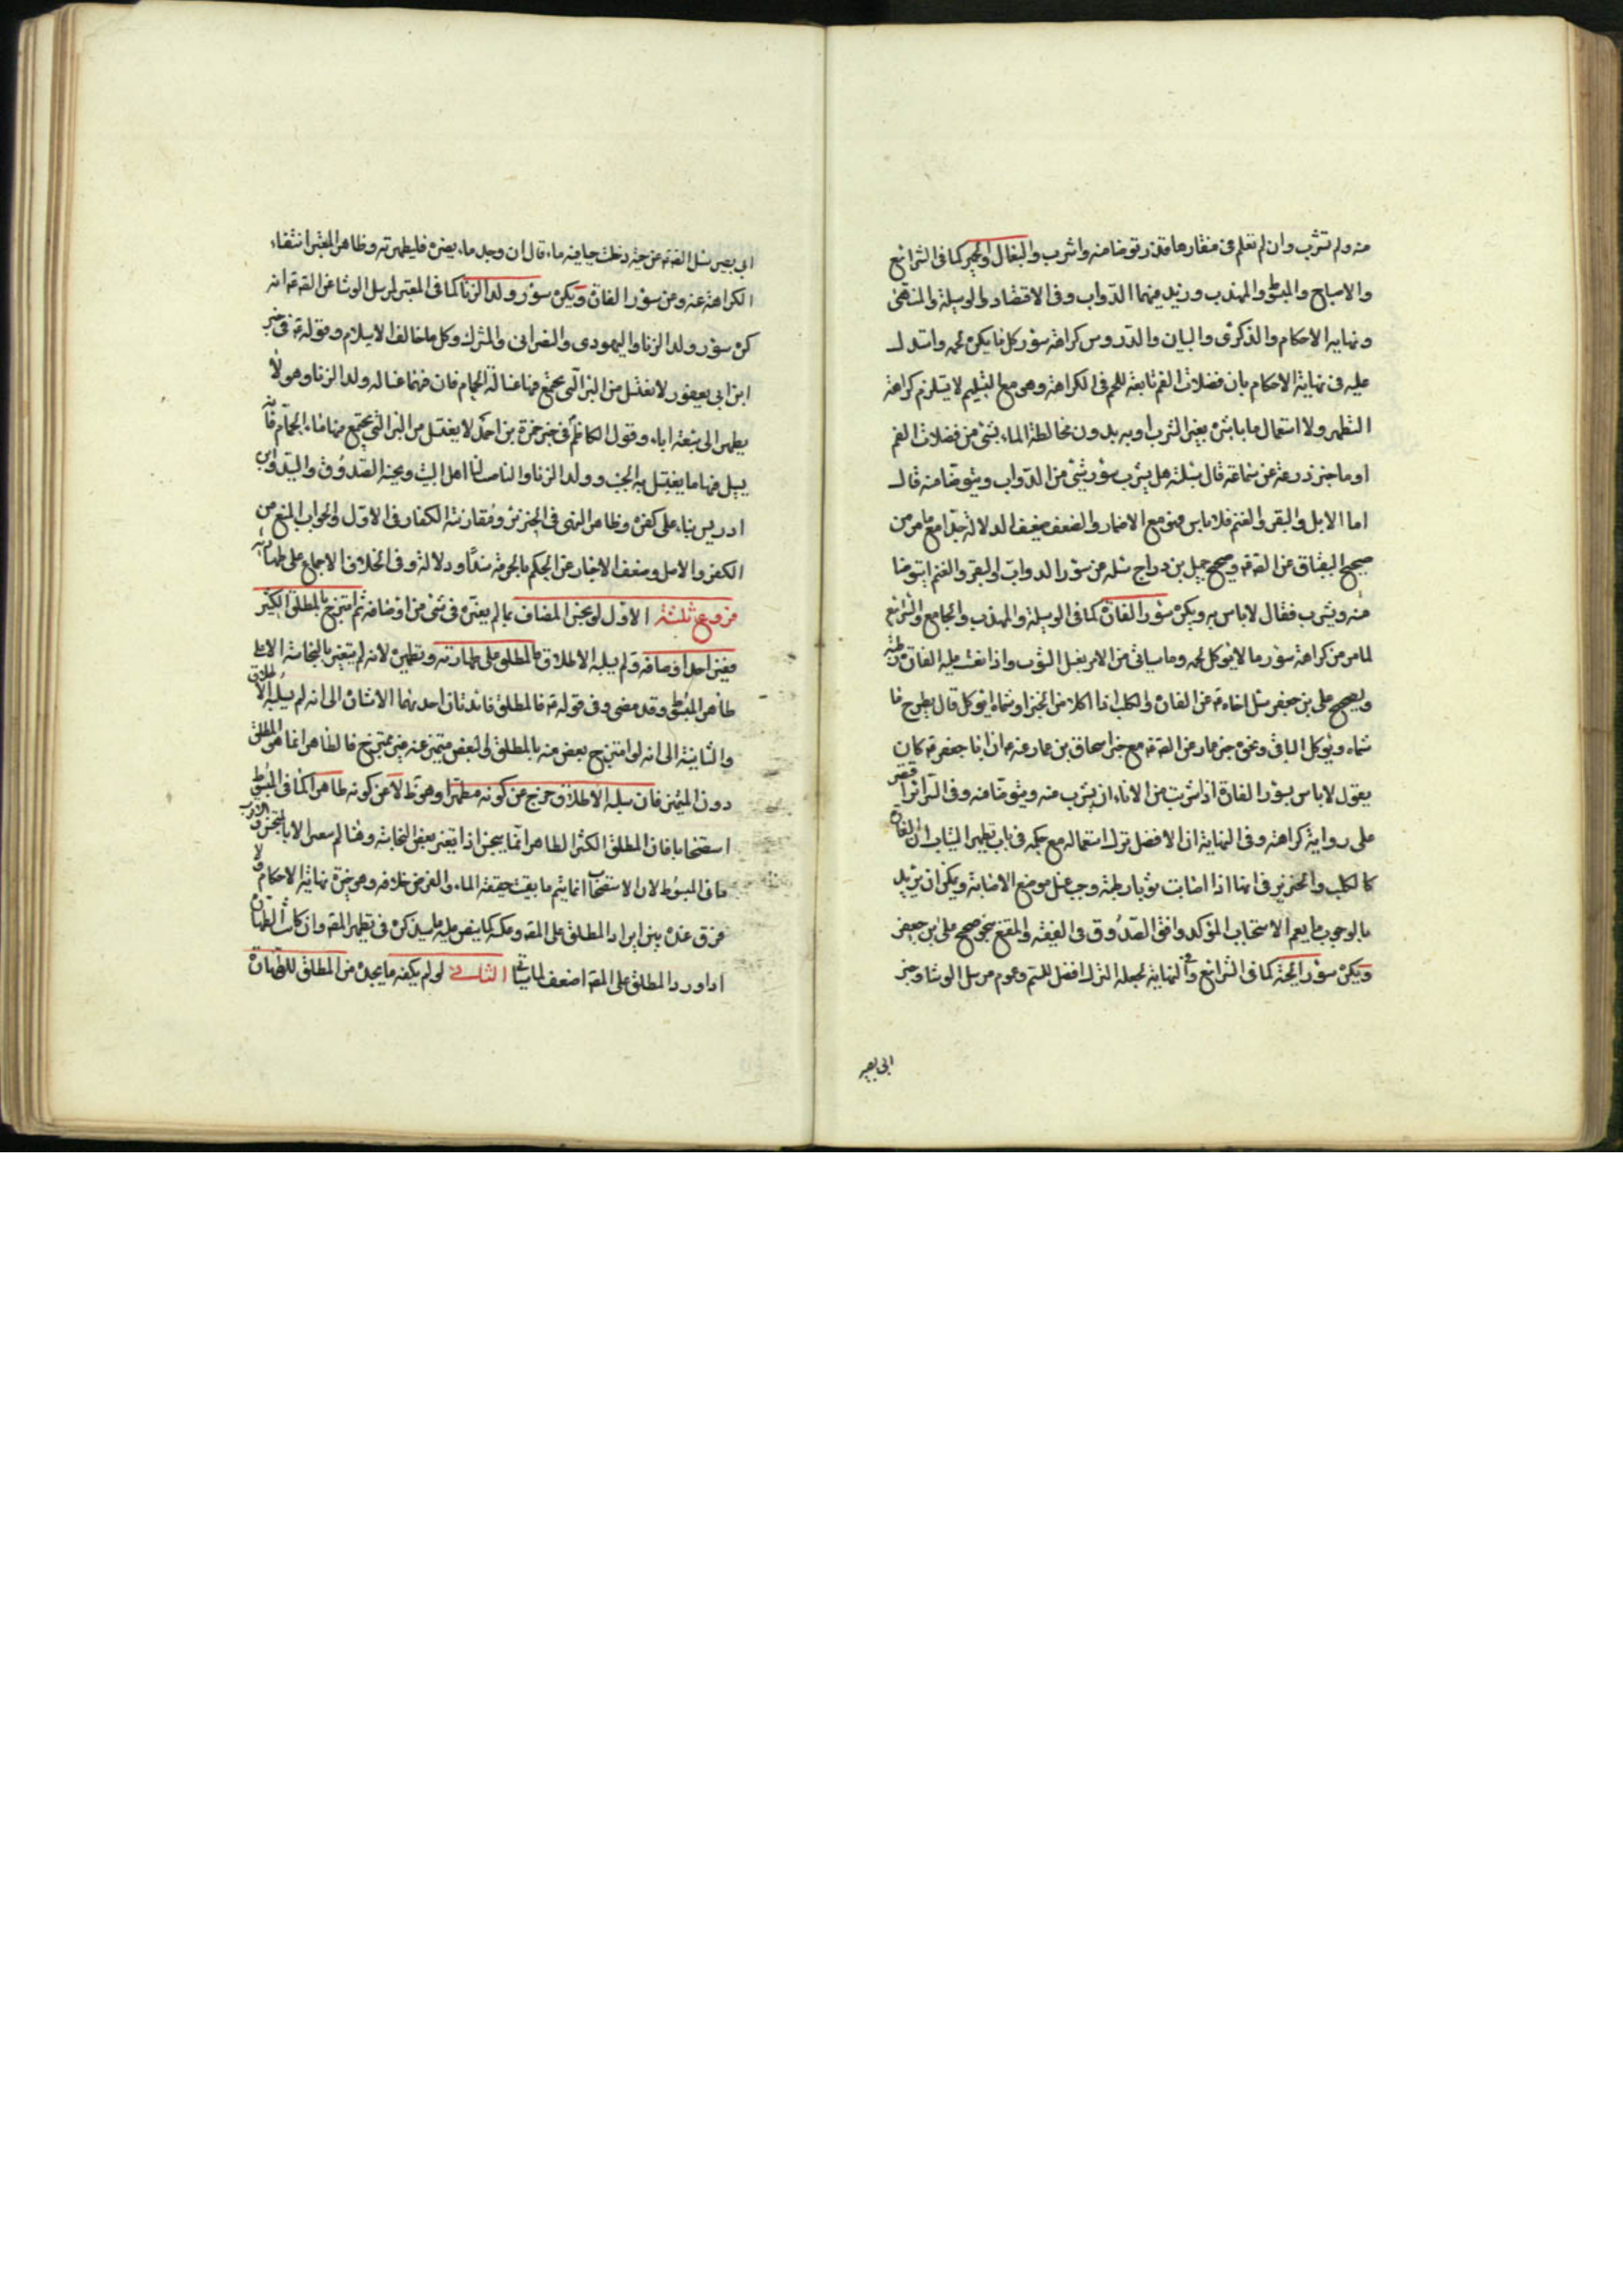 منه ولم تشرب وان لم تعلم فى منقارها قذر توضا منه واشرب والبغال والحمير كما فى الشرائع
والاصباح والمبسوط والمهذب وزيد فيهما الدواب وفى الاقتصاد والوسيلة والمنتهى
ونهاية الاحكام والذكرى والبيان والدروس كراهة سؤر كل ما يكره لحمه واستدل
عليه فى نهاية الاحكام بان فضلات الفم تابعة للحم فى الكراهة وهو مع التسليم لا يستلزم كراهة
التطهر ولا استعمال ما باشره بغير الشرب او به بدون مخالطة الماء بشئ من فضلات الفم
اوما خبر زرعة عن سماعة قال سئلته هل يشرب سؤر شئ من الدواب ويتوضا منه قال
اما الابل والبقر والغنم فلا باس وهو مع الاضمار والضعف ضعيف الدلالة جدا مع ما مر من
صحيح البقباق عن الصّ وصحيح جميل بن دراج سئله عن سؤر الدواب والبقر والغنم ايتوضا
منه ويشرب فقال لا باس به ويكره سؤر الفارة كما فى الوسيلة والمهذب والجامع والشرائع
لما مر من كراهة سؤر ما لا يؤكل لحمه وما سياتى من الامر بغسل الثوب واذا مشت عليه الفارة رطبة
ويصحح على بن جعفر سئل اخاه عن الفارة والكلب اذا اكلا من الخبز او شماه ايؤكل قال يطرح ما
شماه ويؤكل الباقى ونحوه خبر عمار عن الصّ مع خبر اسحاق بن عمار عنه ان ابا جعفر كان
يقول لا باس بسؤر الفارة اذا شربت من الاناء ان يشرب منه ويتوضا منه وفى السرائر اقتصر
على رواية كراهته وفى النهاية ان الافضل ترك استعماله مع حكمه فى باب تطهير الثياب ان الفارة
كالكلب والخنزير فى انها اذا اصابت ثوبا رطبة وجب غسل موضع الاصابة ويمكن ان يريد
بالوجوب ما يعم الاستحباب المؤكد وافتى الصدوق فى الفقيه والمقنع بنحو صحيح على بن جعفر
ويكره سؤر الحية كما فى الشرائع وفى النهاية لجعله الترك افضل للسم وعموم مرسل الوشا وخبر
ابى بصير
ابى بصير سئل الصّ عن حية دخلت حبا فيه ماء قال ان وجد ماء غيره فليطهرقه وظاهر المعتبر انتفاء
الكراهة عنه ومن سؤر الفارة ويكره سؤر ولد الزنا كما فى المعتبر لمرسل الوشا عن الصّ انه
كره سؤر ولد الزنا واليهودى والنصرانى والمشرك وكل ما خالف الاسلام وقوله فى خبر
ابن ابى يعفور لا تغتسل من البئر التى يجتمع فيها غسالة الحمام فان فيها غسالة ولد الزنا وهو لا
يطهر الى سبعة اباء وقول الكاظم فى خبر حمزة بن احمد لا يغتسل من البئر التى يجتمع فيها ماء الحمام فانه
يسيل فيها ما يغتسل به الجنب وولد الزنا والناصب لنا اهل البيت ونجسه الصدوق والسيد وابن
ادريس بناء على كفره وظاهر النهى فى الخبرين ومقارنته الكفار فى الاول والجواب المنع من
الكفر والاصل وضعف الاخبار عن الحكم بالحرمة سندا ودلالة وفى الخلاف الاجماع على طهارته
فروع ثلثة الاول لو نجس المضاف بما لم يغيره فى شئ من اوصافه ثم امتزج بالمطلق الكثير
فغير احد اوصافه ولم يسلبه الاطلاق فالمطلق على طهارته وتطهيره لانه لم يتغير بالنجاسة الا
ظاهر المبسوط وقد مضى وفى قوله فالمطلق فائدتان احديهما الاشارة الى انه لم يسلبه الاطلاق
والثانية الى انه لو امتزج بعض منه بالمطلق والبعض متميز عنه غير ممتزج فالطاهر انما هو المطلق
دون المتميز فان سلبه الاطلاق خرج عن كونه مطهرا وهو ظ لا عن كونه طاهرا كما فى المبسوط
استصحابا فان المطلق الكثير الطاهر انما ينجس اذا تغير بعض النجاسة وهنا لم يتغير الا بالمتنجس
ما فى المبسوط لان الاستصحاب انما يتم ما بقيت حقيقة الماء والفرض خلافه وهو خيرة نهاية الاحكام ولا
فرق عنده بين ايراد المطلق على المضاف وعكسه كما ينص عليه ما سيذكره فى تطهير المضاف وان كانت الطهارة
اذا ورد المطلق على المضاف اضعف لما سياتى الثانى لو لم يكفه ما يجده من المطلق للطهارة